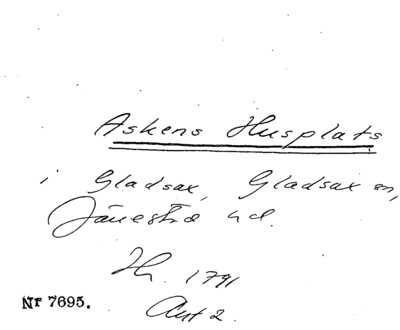 Askens Husplats
i Gladsax, Gladsax sn,
Järrestad hd.
Hr. 1791
Nr 7695.
Ant 2.